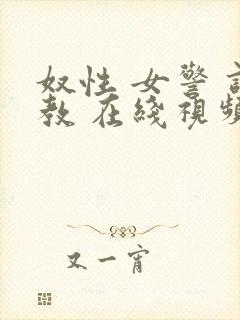 奴性 女警 調
教 在綫視頻
又一宵